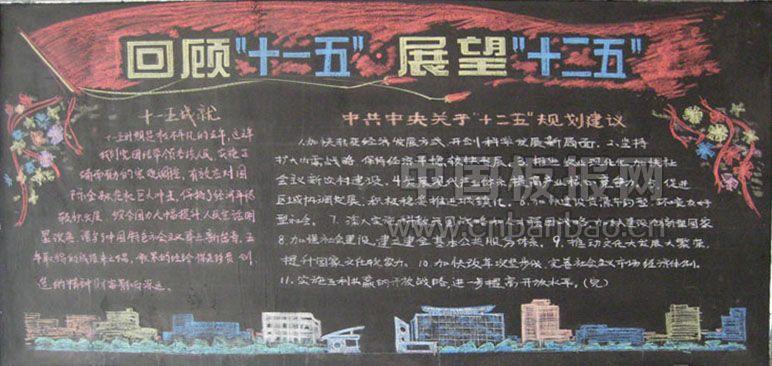 回顾“十一五”·展望“十二五”
十一五成就
十一五时期是极不平凡的五年,这五年
我们党团结带领各族人民,实施正
确有力的宏观调控,有效应对国
际金融危机巨大冲击,保持了经济平稳
较快发展,综合国力大幅提升,人民生活明
显改善,谱写了中国特色
年取得的成绩来之不易,积累的经验 创
造的精神财富影响深远。
中共中央关于“十二五”规划建议
1.加快转变经济发展方式,开创科学发展新局面。2.坚持
扩大内需战略,保持经济平稳较快发展。3.推进农业现代化,加快社
会主义新农村建设。4.发展现代产业体系,提高产业核心竞争力。5.促进
区域协调发展,积极稳妥推进城镇化。6.加快建设资源节约型、环境友好
型社会。7.深入实施科教兴国战略和人才强国战略,加快建设创新型国家
8.加强社会建设,建立健全基本公共服务体系。9.推动文化大发展大繁荣,
提升国家文化软实力。10.加快改革攻坚步伐,完善社会主义市场经济体制。
11.实施互利共赢的开放战略,进一步提高开放水平。(完)
中国板报网
www.cnbanbao.cn